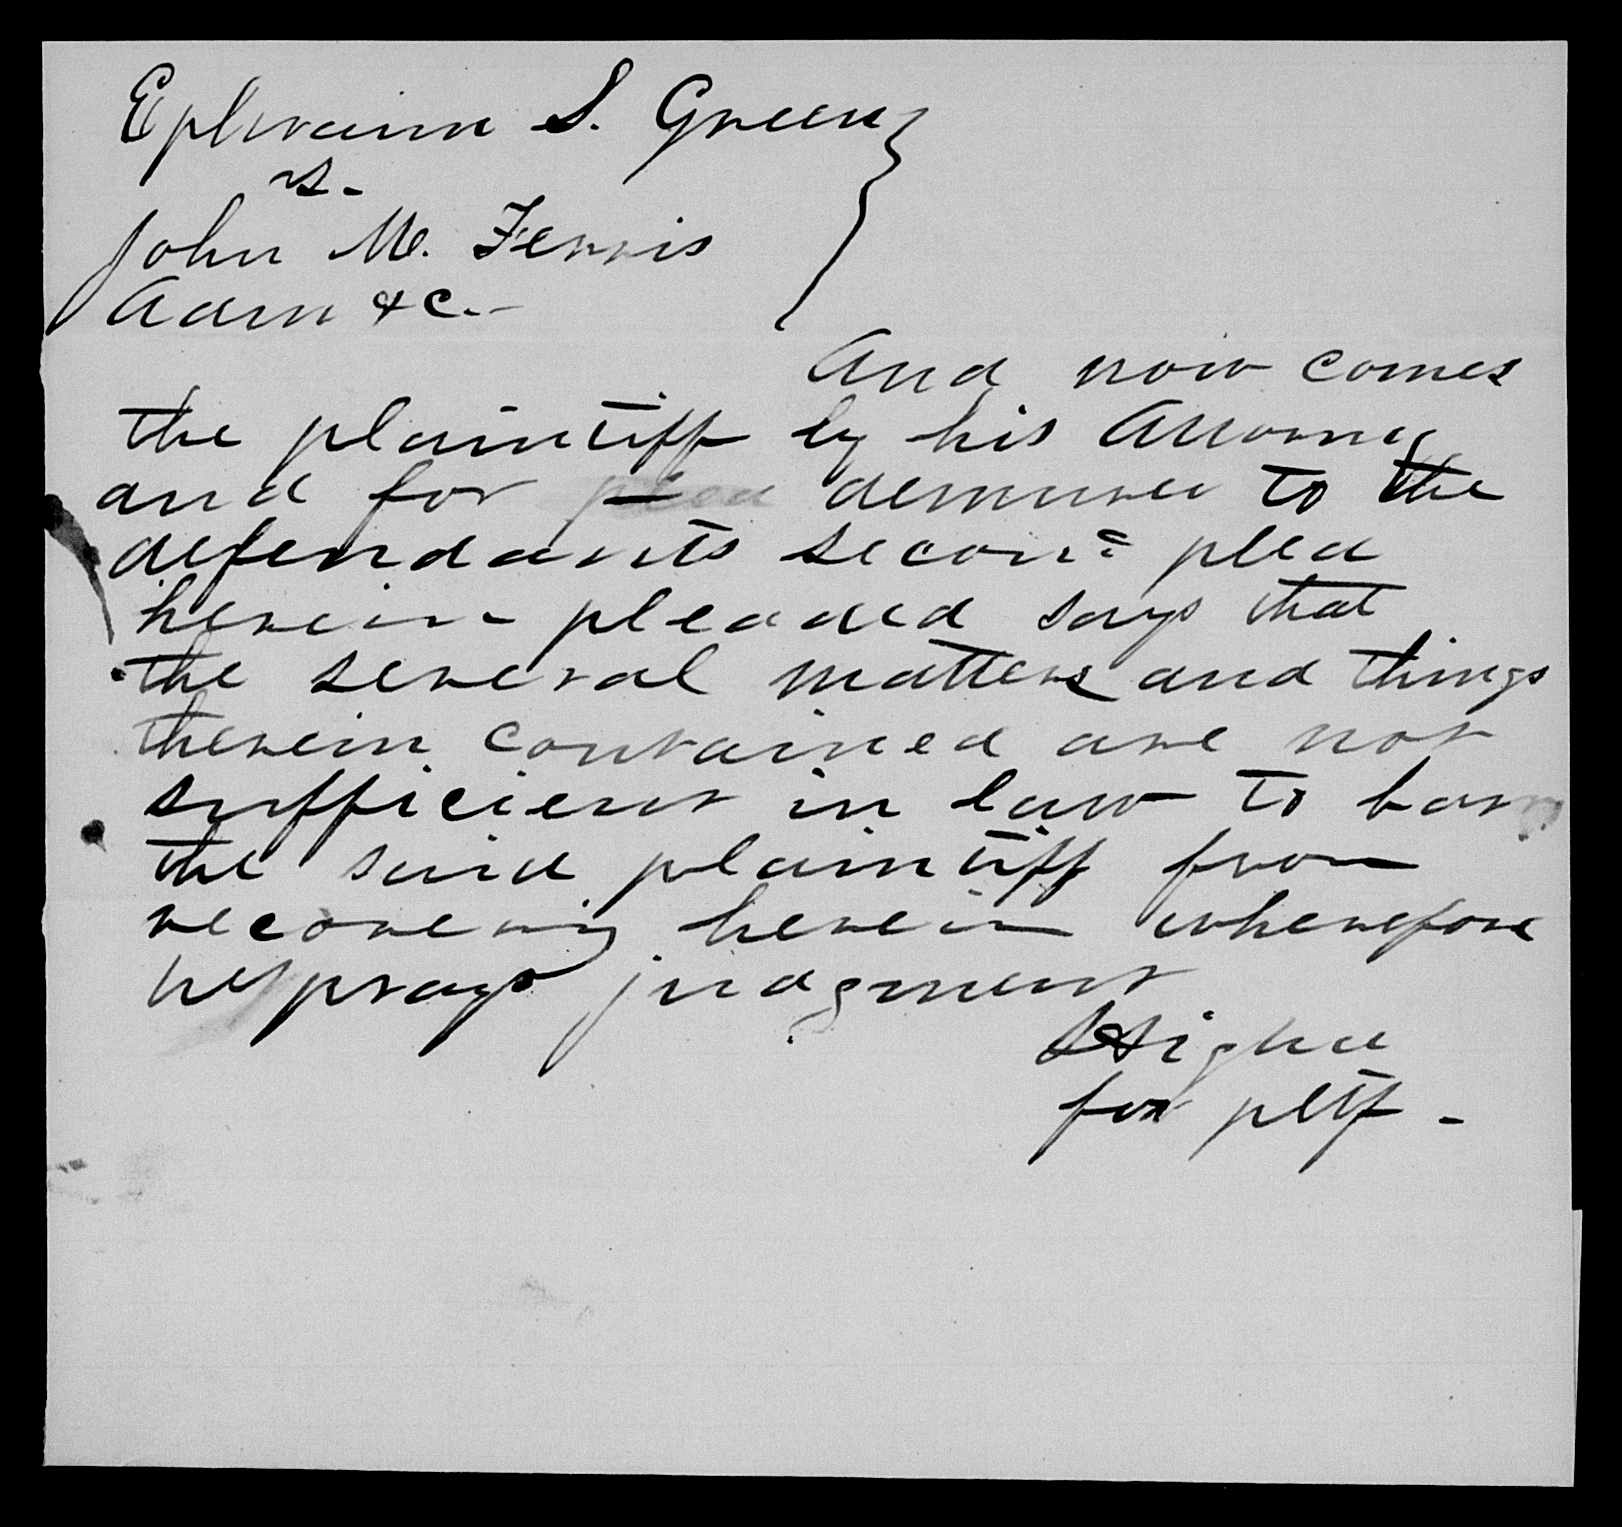 Ephraim S. Green
vs.
John M. Ferris
Adm &c.
And now comes
the plaintiff by his Attorney
and for plea demurrer to the
defendants second plea
herein pleaded says that
the several matters and things
therein contained are not
sufficient in law to bar
the said plaintiff from
recovering herein wherefore
he prays judgment
for pltf.